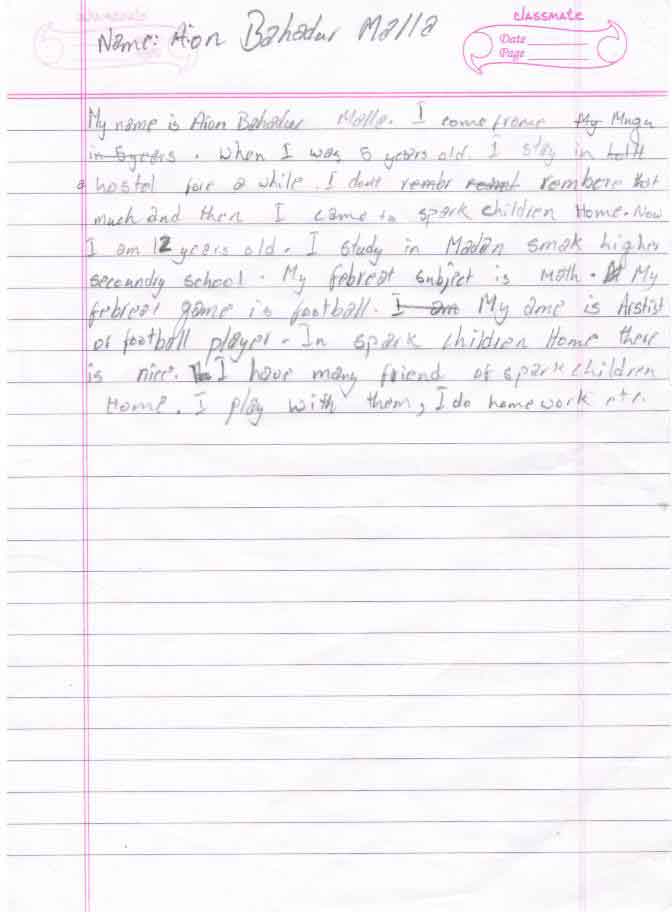 classmate
Date
Page
Name: Aion Bahadur Malla
My name is Aion Bahadur Malla. I come frome My Mugu
in 5 years. when I was 5 years old. I stay in
a hostel fore a while. I dont rembr rembere that
much and then I came to spark children Home. Now
I am 12 years old. I study in Madan smak higher
secoundry school. My febreat subject is math. My
febreat game is football. I am My ame is Arstist
of football player. In spark children Home there
is nice. I have many friend of spark children
Home. I play with them, I do home work etc.